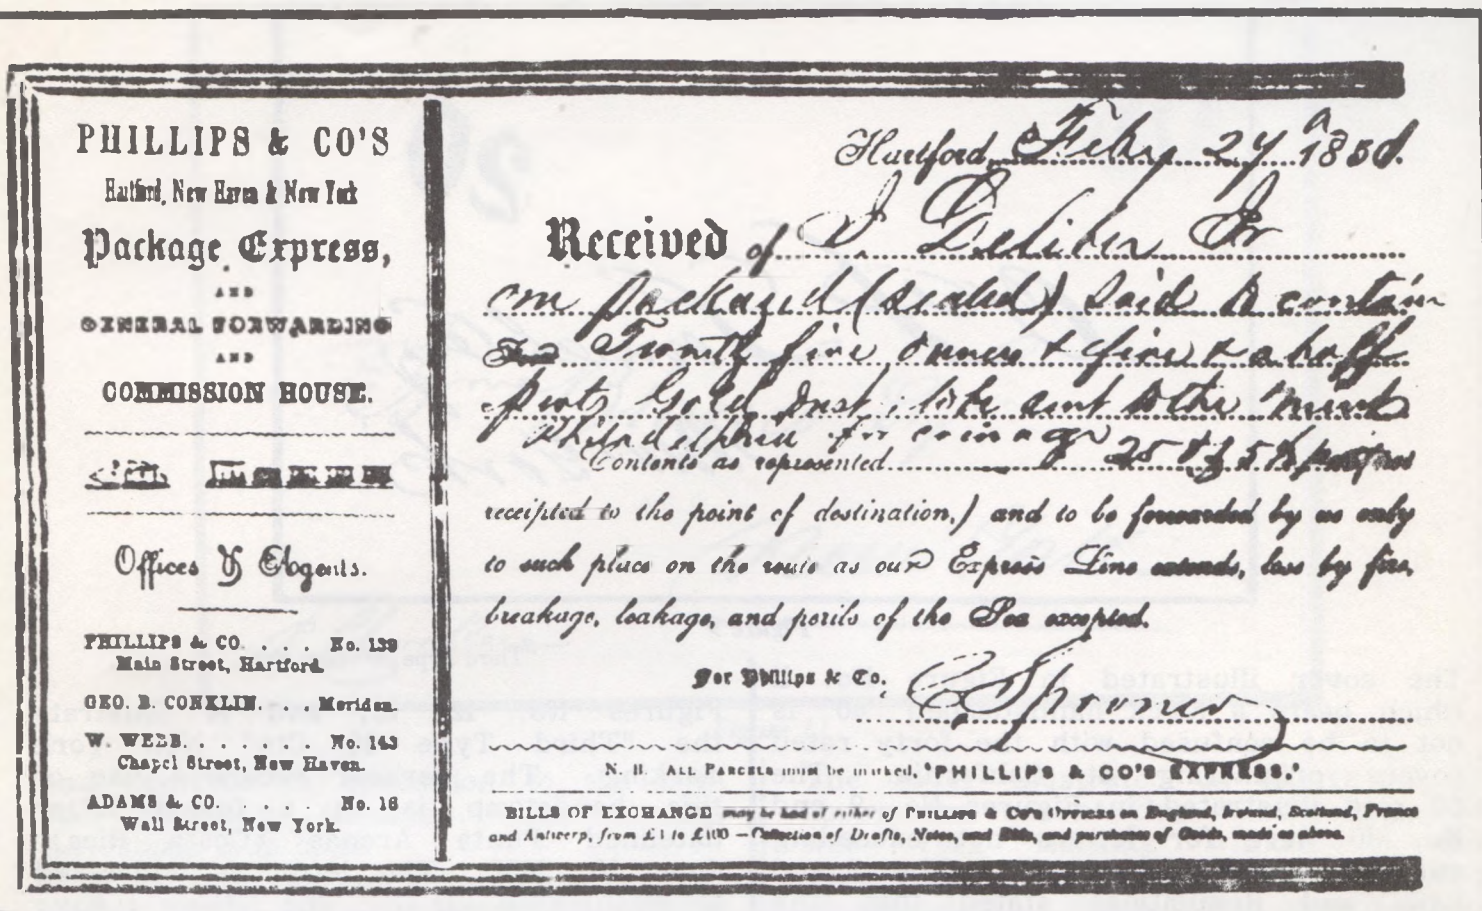 PHILLIPS & CO'S
Hartford, New Haven & New York
Package Express,
AND
GENERAL FORWARDING
AND
COMMISSION HOUSE.
Offices & Agents.
PHILLIPS & CO. . . . No. 139
Main Street, Hartford.
GEO. B. CONKLIN. . . Meriden.
W WEBB. . . . . . No. 143
Chapel Street, New Haven.
ADAMS & CO. No. 16
Wall Street, New York.
Hartford, Feby 27 1850.
Received of Jr
one package (sealed) said to contain
Twenty five ounces & five & a half
pwts Gold Dust, to be sent to the mint
Philadelphia for coinage 25 5½
Contents as represented
receipted to the point of destination,) and to be forwarded by us only
to such place on the route as our Express Line extends, loss by fire,
breakage, leakage, and perils of the Sea excepted.
For Phillips & Co.
Spooner
N. B. ALL PARCELS must be marked, "PHILLIPS & CO'S EXPRESS."
BILLS OF EXCHANGE may be had of either of PHILLIPS & CO'S OFFICES on England, Ireland, Scotland, France
and Antwerp, from £1 to £100 — Collection of Drafts, Notes, and Bills, and purchases of Goods, made as above.